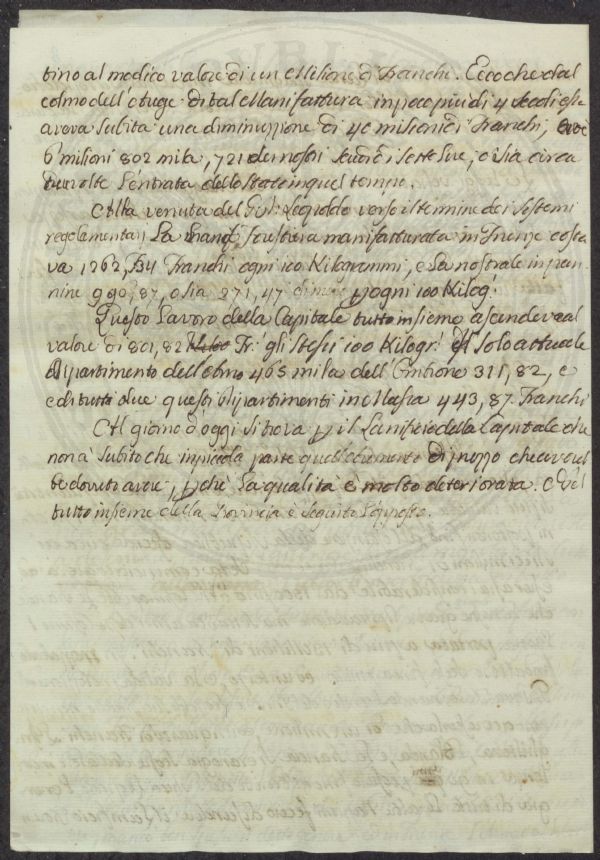 tino al modico valore di un Milione di Franchi. Ecco che dal
colmo dell'Auge di tal Manifattura in poco più di 4 secoli essa
aveva subita una diminuzione di 40 milioni di Franchi, cioè
6 milioni 802 mila, 721 dei nostri scudi di sette lire, ossia circa
due volte l'entrata dello Stato in quel tempo.
Alla venuta del G.D. Leopoldo verso il termine dei sistemi
regolamentarj La manif. forestiera manifatturata in Firenze costa
va 1262, 34 Franchi ogni 100 Kilogrammi, e la nostrale
990, 87, ossia 271, 47 di meno p ogni 100 Kilog.
Questo Lavoro della Capitale tutto insieme ascendeva al
valore di 801, 82 Fr. gli stessi 100 Kilogr. Il solo attuale
Dipartimento dell'Arno 465 mila dell'Ombrone 311, 82, e
e di tutti due questi Dipartimenti in Massa 443, 87 Franchi
Al giorno d'oggi si trova p il Lanificio della Capitale che
non à subito che in piccola parte quell'aumento di prezzo che avreb
be dovuto avere, p che la qualità è molto deteriorata. E nel
tutto insieme della Provincia è seguito l'opposto.